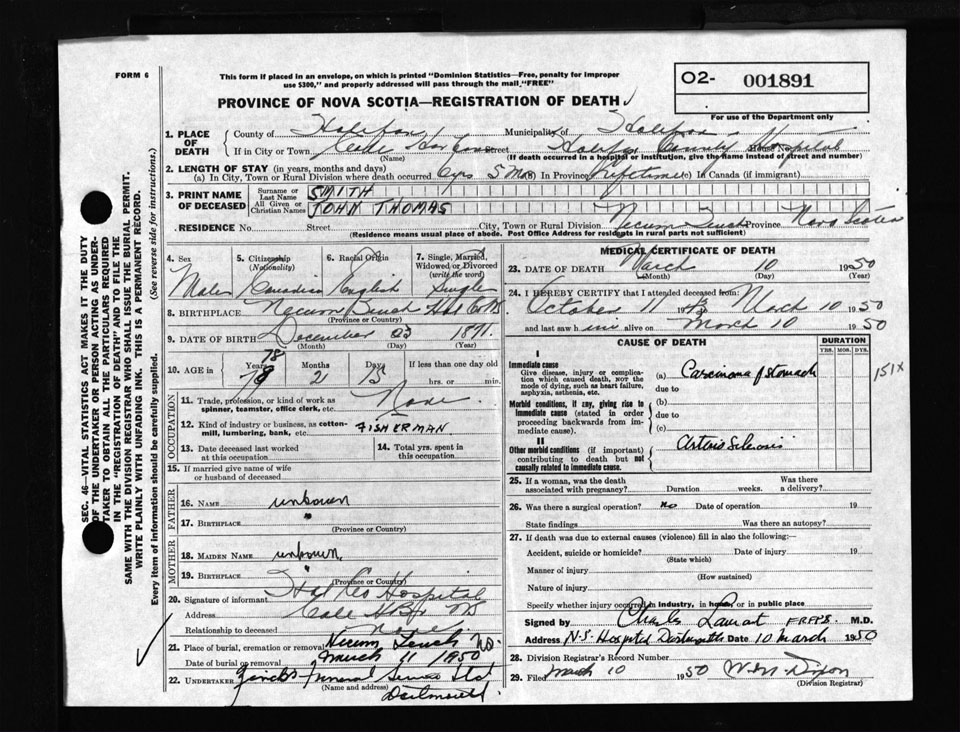 FORM 6
This form if placed in an envelope, on which is printed "Dominion Statistics—Free, penalty for improper
use $300," and properly addressed will pass through the mail "FREE"
PROVINCE OF NOVA SCOTIA—REGISTRATION OF DEATH
O2- 001891
For use of the Department only
SEC. 46—VITAL STATISTICS ACT MAKES IT THE DUTY
OF THE UNDERTAKER OR PERSON ACTING AS UNDER-
TAKER TO OBTAIN ALL THE PARTICULARS REQUIRED
IN THE "REGISTRATION OF DEATH" AND TO FILE THE
SAME WITH THE DIVISION REGISTRAR WHO SHALL ISSUE THE BURIAL PERMIT.
WRITE PLAINLY WITH UNFADING INK. THIS IS A PERMANENT RECORD.
Every item of information should be carefully supplied. (See reverse side for instructions.)
1. PLACE OF DEATH
County of Halifax Municipality of Halifax
If in City or Town Cole Harbour Street Halifax County Hospital
(Name) (If death occurred in a hospital or institution, give the name instead of street and number)
2. LENGTH OF STAY (in years, months and days)
(a) In City, Town or Rural Division where death occurred 6 yrs 5 Mos In Province Lifetime (c) In Canada (if immigrant)
3. PRINT NAME OF DECEASED
Surname or Last Name SMITH
All Given or Christian Names JOHN THOMAS
RESIDENCE No. Street City, Town or Rural Division Necum Teuch Province Nova Scotia
(Residence means usual place of abode. Post Office Address for residents in rural parts not sufficient)
4. Sex 5. Citizenship (Nationality) 6. Racial Origin 7. Single, Married, Widowed or Divorced (write the word)
Male Canadian English Single
8. BIRTHPLACE Necum Teuch Hal Co NS
(Province or Country)
9. DATE OF BIRTH December 23 1871.
(Month) (Day) (Year)
10. AGE in Years Months Days If less than one day old
78 2 15 hrs. or min.
OCCUPATION
11. Trade, profession, or kind of work as
spinner, teamster, office clerk, etc. None.
12. Kind of industry or business, as cotton-
mill, lumbering, bank, etc. FISHERMAN
13. Date deceased last worked at this occupation
14. Total yrs. spent in this occupation
15. If married give name of wife
or husband of deceased
FATHER
16. NAME unknown
17. BIRTHPLACE "
(Province or Country)
MOTHER
18. MAIDEN NAME unknown
19. BIRTHPLACE "
(Province or Country)
20. Signature of informant Hal Co Hospital
Address Cole Hbr NS
Relationship to deceased None
21. Place of burial, cremation or removal Necum Teuch NS.
Date of burial or removal March 11 1950
22. UNDERTAKER Zinck's Funeral Service Ltd
(Name and address) Dartmouth.
MEDICAL CERTIFICATE OF DEATH
23. DATE OF DEATH March 10 1950
(Month) (Day) (Year)
24. I HEREBY CERTIFY that I attended deceased from:
October 11 1943 March 10 1950
and last saw him alive on March 10 1950
CAUSE OF DEATH DURATION
YRS. MOS. DYS.
I
Immediate cause
Give disease, injury or complica-
tion which caused death, not the
mode of dying, such as heart failure,
asphyxia, asthenia, etc.
(a) Carcinoma of stomach 151X
due to
Morbid conditions, if any, giving rise to
immediate cause (stated in order
proceeding backwards from im-
mediate cause).
(b)
due to
(c)
II
Other morbid conditions (if important)
contributing to death but not
causally related to immediate cause.
Arterio Sclerosis
25. If a woman, was the death
associated with pregnancy? Duration weeks. Was there a delivery?
26. Was there a surgical operation? no Date of operation 19
State findings Was there an autopsy?
27. If death was due to external causes (violence) fill in also the following:—
Accident, suicide or homicide? Date of injury 19
(State which)
Manner of injury
(How sustained)
Nature of injury
Specify whether injury occurred in industry, in home, or in public place
Signed by Charles M.D.
Address N.S. Hospital Dartmouth Date 10 March 1950
28. Division Registrar's Record Number
29. Filed March 10 1950 Dixon
(Division Registrar)